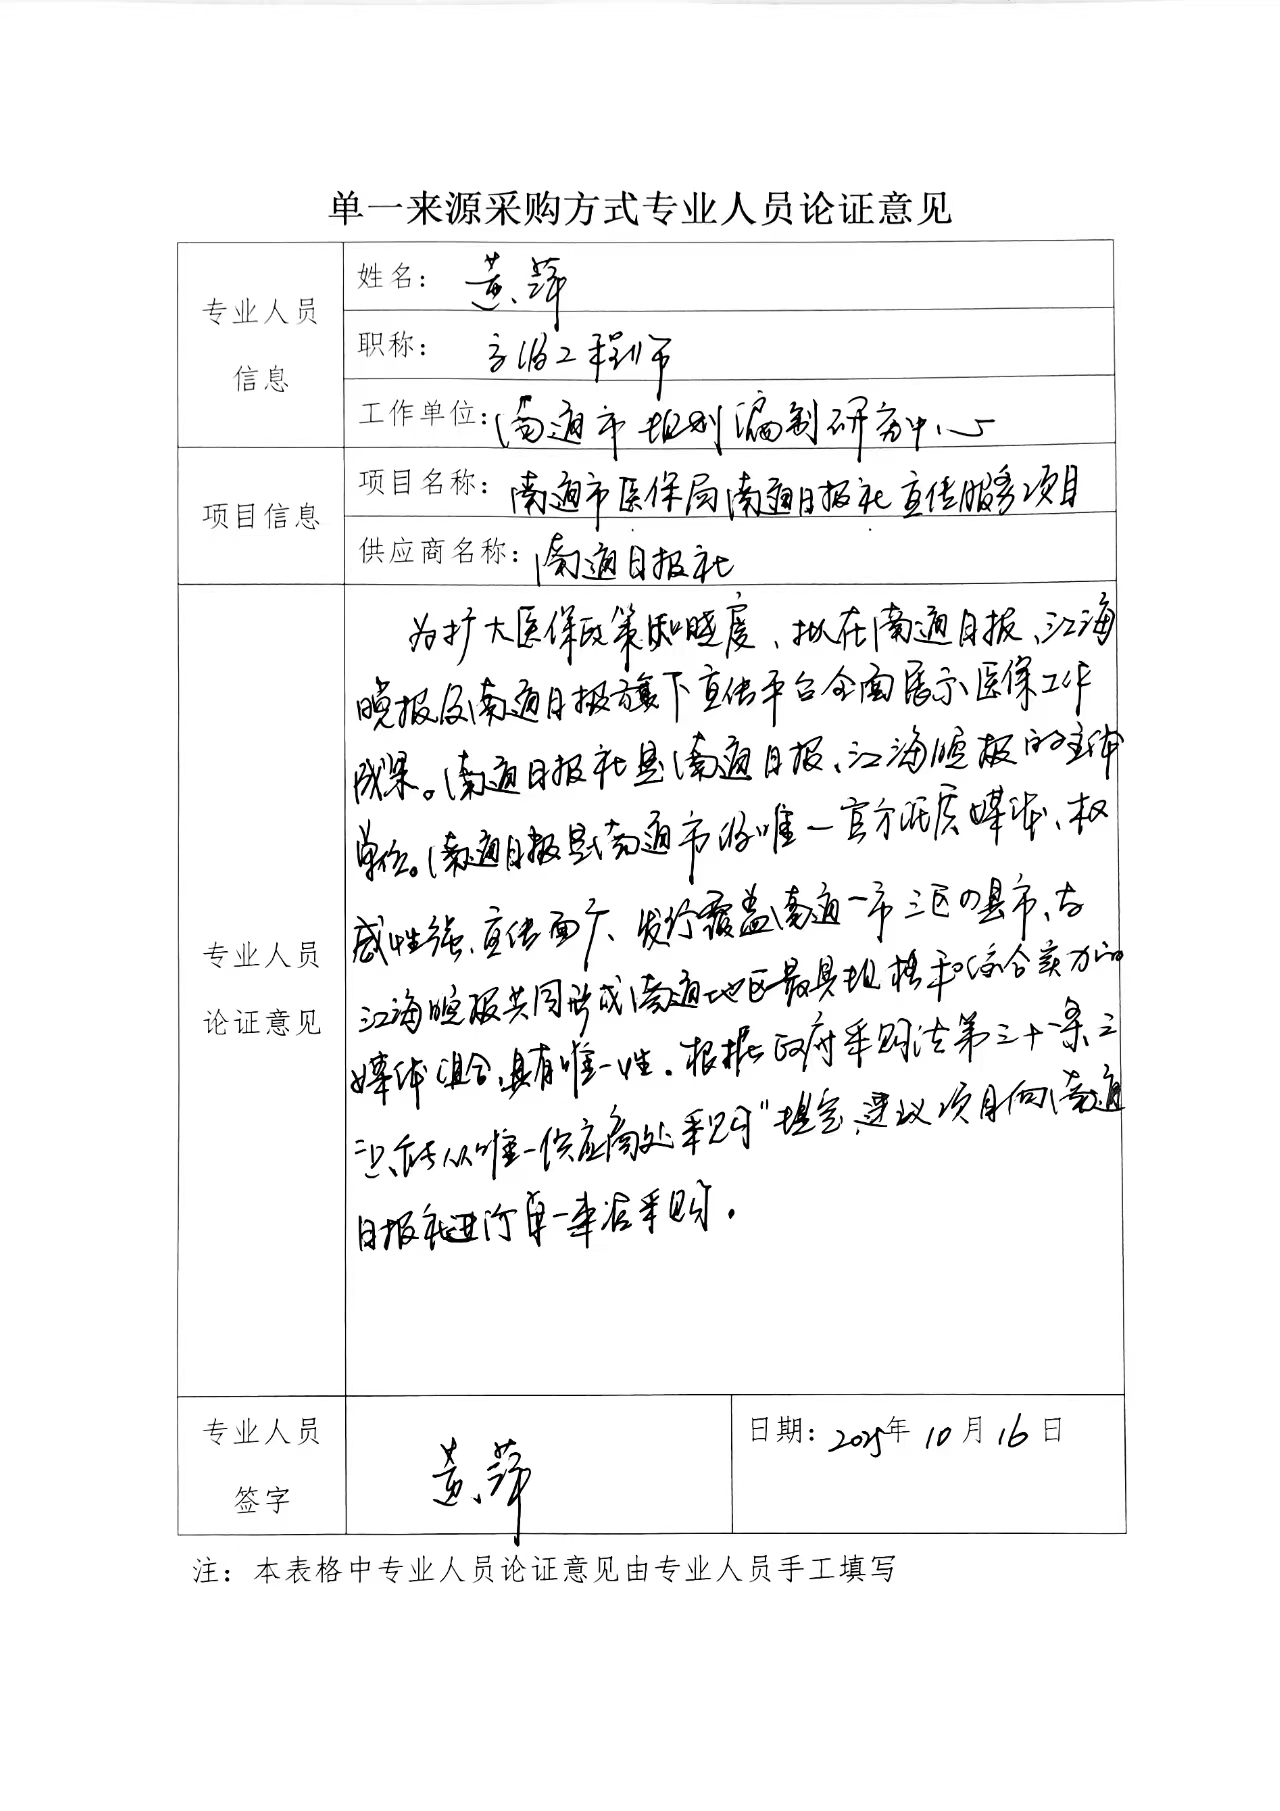 单一来源采购方式专业人员论证意见
专业人员
信息
姓名： 黄萍
职称： 高级工程师
工作单位：南通市规划编制研究中心
项目信息
项目名称：南通市医保局南通日报社宣传服务项目
供应商名称：南通日报社
专业人员
论证意见
为扩大医保政策知晓度、拟在南通日报、江海
晚报及南通日报旗下宣传平台全面展示医保工作
成果。南通日报社是南通日报、江海晚报的主体
单位。南通日报是南通市级唯一官方纸质媒体、权
威性强、宣传面广、发行覆盖南通一市三区四县市、与
江海晚报共同形成南通地区最具规格和综合实力的
媒体组合，具有唯一性。根据政府采购法第三十一条之
只能从唯一供应商处采购"规定，建议项目向南通
日报社进行单一来源采购。
专业人员
签字
黄萍
日期：2025年10月16日
注：本表格中专业人员论证意见由专业人员手工填写